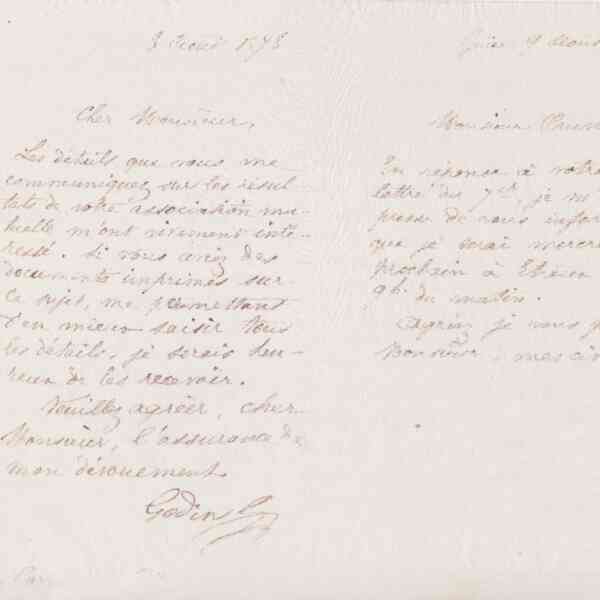 8 Août 1878
Cher Monsieur,
Les détails que vous me
communiquez sur les résul-
tats de votre association mu-
tuelle m'ont vivement inté-
ressé. Si vous aviez des
documents imprimés sur
ce sujet, me permettant
d'en mieux saisir tous
les détails, je serais heu-
reux de les recevoir.
Veuillez agréer, cher
Monsieur, l'assurance de
mon dévouement.
Godin
Guise 9 Août
Monsieur
En réponse à votre
lettre du 7 je m'
presse de vous infor
que je serai mercre
prochain à
9h. du matin.
Agréez je vous p
Monsieur, mes civ